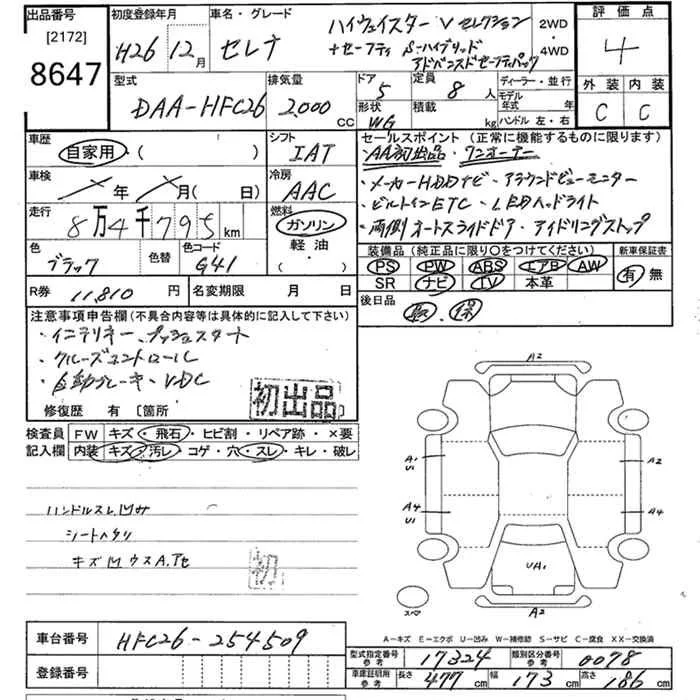 出品番号 初度登録年月 車名・グレード ハイウェイスター Vセレクション 2WD 評価点
[2172] H26年12月 セレナ +セーフティ S-ハイブリッド ・4WD 4
8647 アドバンスドセーフティパック
型式 排気量 ドア 定員 ディーラー・並行 外装 内装
DAA-HFC26 2,000 CC 5 8人 モデル年式 年 C C
形状 積載 ハンドル 左・右
WG kg
車歴 シフト セールスポイント (正常に機能するものに限ります)
自家用・( ) IAT ・AA初出品・ワンオーナー
車検 年 月( 日) 冷房 ・メーカーHDDナビ・アラウンドビューモニター
AAC ・ビルトインETC・LEDヘッドライト
走行 8万4千795km 燃料 ・両側オートスライドドア・アイドリングストップ
ガソリン
軽油
・( )
色 色替 色コード 装備品 (純正品に限り○をつけてください) 新車保証書
ブラック G41 PS PW ABS エアB AW 有 無
SR ナビ TV 本革
R券 11,810円 名変期限 月 日 後日品 取 保
注意事項申告欄(不具合内容等は具体的に記入して下さい)
・インテリキー プッシュスタート
・クルーズコントロール
・自動ブレーキ・VDC
初出品
修復歴 有 [箇所
検査員 FW キズ・飛石・ヒビ割・リペア跡・×要
記入欄 内装 キズ・汚レ・コゲ・穴・スレ・キレ・破レ
ハンドルスレ凹み
シートヘタリ
初
A2
A1 A2
U1
A4 A4
U1
UA1
A2
スペア
A-キズ E-エクボ U-凹み W-補修跡 S-サビ C-腐食 XX-交換済
車台番号 HFC26-254509
型式指定番号 参考 17324 類別区分番号 参考 0078
登録番号
車庫証明用 参考 長さ 477cm 幅 173cm 高さ 186cm